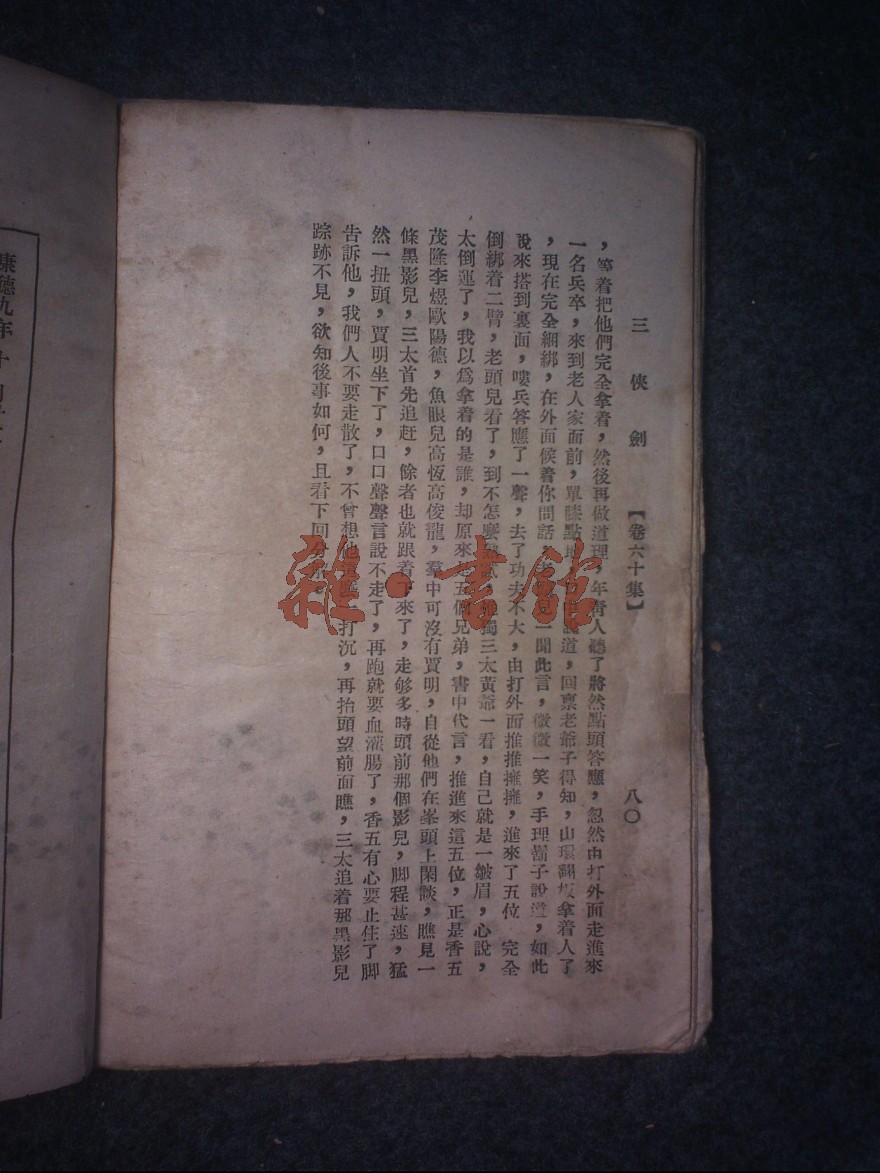 三俠劍 【卷六十集】 八〇
，等着把他們完全拿着，然後再做道理，年靑人聽了將然點頭答應，忽然由打外面走進來
一名兵卒，來到老人家面前，單膝點地，說道，回禀老爺子得知，山環翻板拿着人了
，現在完全綑綁，在外面候着你問話，一聞此言，微微一笑，手理鬍子說道，如此
說來搭到裏面，嘍兵答應了一聲，去了功夫不大，由打外面推推擁擁，進來了五位　完全
倒綁着二臂，老頭兒看了，到不怎麼獨三太黃爺一看，自己就是一皺眉，心說，
太倒運了，我以爲拿着的是誰，却原來是五個兄弟，書中代言，推進來這五位，正是香五
茂隆李煜歐陽德，魚眼兒高恆高俊龍，羣中可沒有賈明，自從他們在峯頭上閑談，瞧見一
條黑影兒，三太首先追赶，餘者也就跟着下來了，走够多時頭前那個影兒，脚程甚速，猛
然一扭頭，賈明坐下了，口口聲聲言說不走了，再跑就要血灌腸了，香五有心要止住了脚
告訴他，我們人不要走散了，不曾想他打沉，再抬頭望前面瞧，三太追着那黑影兒
踪跡不見，欲知後事如何，且看下回分
康德九年十
雜·書館